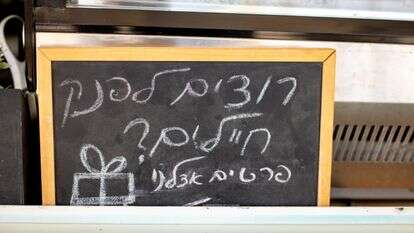 רוצים לפנק
חיילים?
פרטים אצלנו